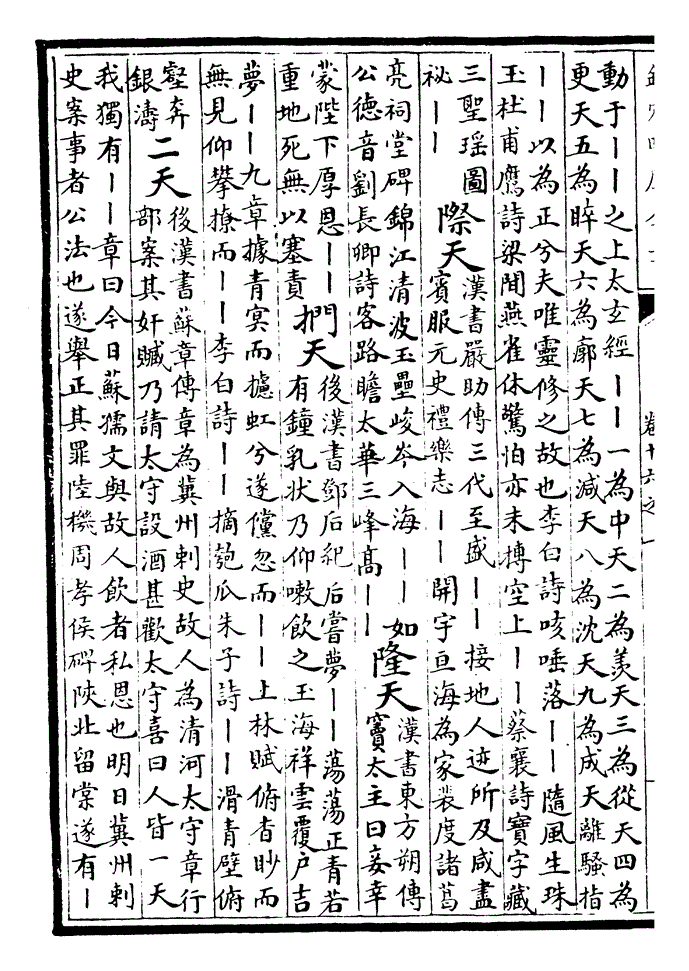 卷十六之一
動于——之上太玄經——一為中天二為羨天三為從天四為
更天五為睟天六為廓天七為減天八為沈天九為成天離騷指
——以為正兮夫唯靈修之故也李白詩咳唾落——隨風生珠
玉杜甫鷹詩梁間燕雀休驚怕亦未摶空上——蔡襄詩寶字藏
三聖瑶圖
祕——
際天
漢書嚴助傳三代至盛——接地人迹所及咸盡
賓服元史禮樂志——開宇亘海為家裴度諸葛
亮祠堂碑錦江清波玉壘峻岑入海——如
公德音劉長卿詩客路瞻太華三峰高——
隆天
漢書東方朔傳
竇太主曰妾幸
蒙陛下厚恩——
重地死無以塞責
捫天
後漢書鄧后紀后嘗夢——蕩蕩正青若
有鐘乳狀乃仰嗽飲之玉海祥雲覆户吉
夢——九章據青冥而攄虹兮遂儻忽而——上林賦俯杳眇而
無見仰攀橑而——李白詩——摘匏瓜朱子詩——滑青壁俯
壑奔
銀濤
二天
後漢書蘇章傳章為冀州刺史故人為清河太守章行
部案其奸贓乃請太守設酒甚歡太守喜曰人皆一天
我獨有——章曰今日蘇孺文與故人飲者私恩也明日冀州刺
史案事者公法也遂舉正其罪陸機周孝侯碑陜北留棠遂有—